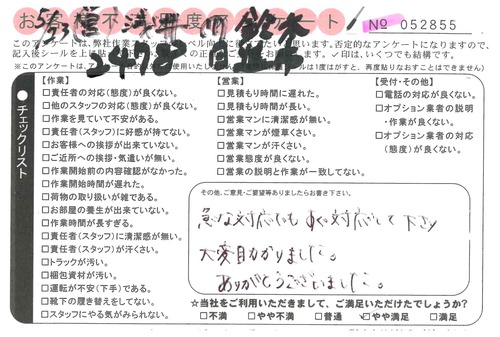 お客様不満足度アンケート
No 052855
このアンケートは、弊社作業スタッフのレベル向上に
否定的なアンケートになりますので、
記入後シールを上に貼って
✓印は、いくつでも結構です。
鈴木
チェックリスト
【作業】
□責任者の対応(態度)が良くない。
□他のスタッフの対応(態度)が良くない。
□作業を見ていて不安がある。
□責任者(スタッフ)に好感が持てない。
□お客様への挨拶が出来ていない。
□ご近所への挨拶・気遣いが無い。
□作業開始前の内容確認がなかった。
□作業開始時間が遅れた。
□荷物の取り扱いが雑である。
□お部屋の養生が出来ていない。
□作業時間が長すぎる。
□責任者(スタッフ)に清潔感が無い。
□責任者(スタッフ)が汗くさい。
□トラックが汚い。
□梱包資材が汚い。
□運転が不安(下手)である。
□靴下の履き替えをしてない。
□スタッフにやる気がみられない。
【営業】
□見積もり時間に遅れた。
□見積もり時間が長い。
□営業マンに清潔感が無い。
□営業マンが煙草くさい。
□営業マンが汗くさい。
□営業態度が良くない。
□営業の説明と作業が一致してない。
【受付・その他】
□電話の対応が良くない。
□オプション業者の説明
・作業が良くない。
□オプション業者の対応
(態度)が良くない。
その他、ご意見・ご要望等ありましたらお書き下さい。
急な対応にもすぐ対応して下さり
大変助かりました。
ありがとうございました。
☆当社をご利用いただきまして、ご満足いただけたでしょうか?
□不満 □やや不満 □普通 ✓やや満足 □満足